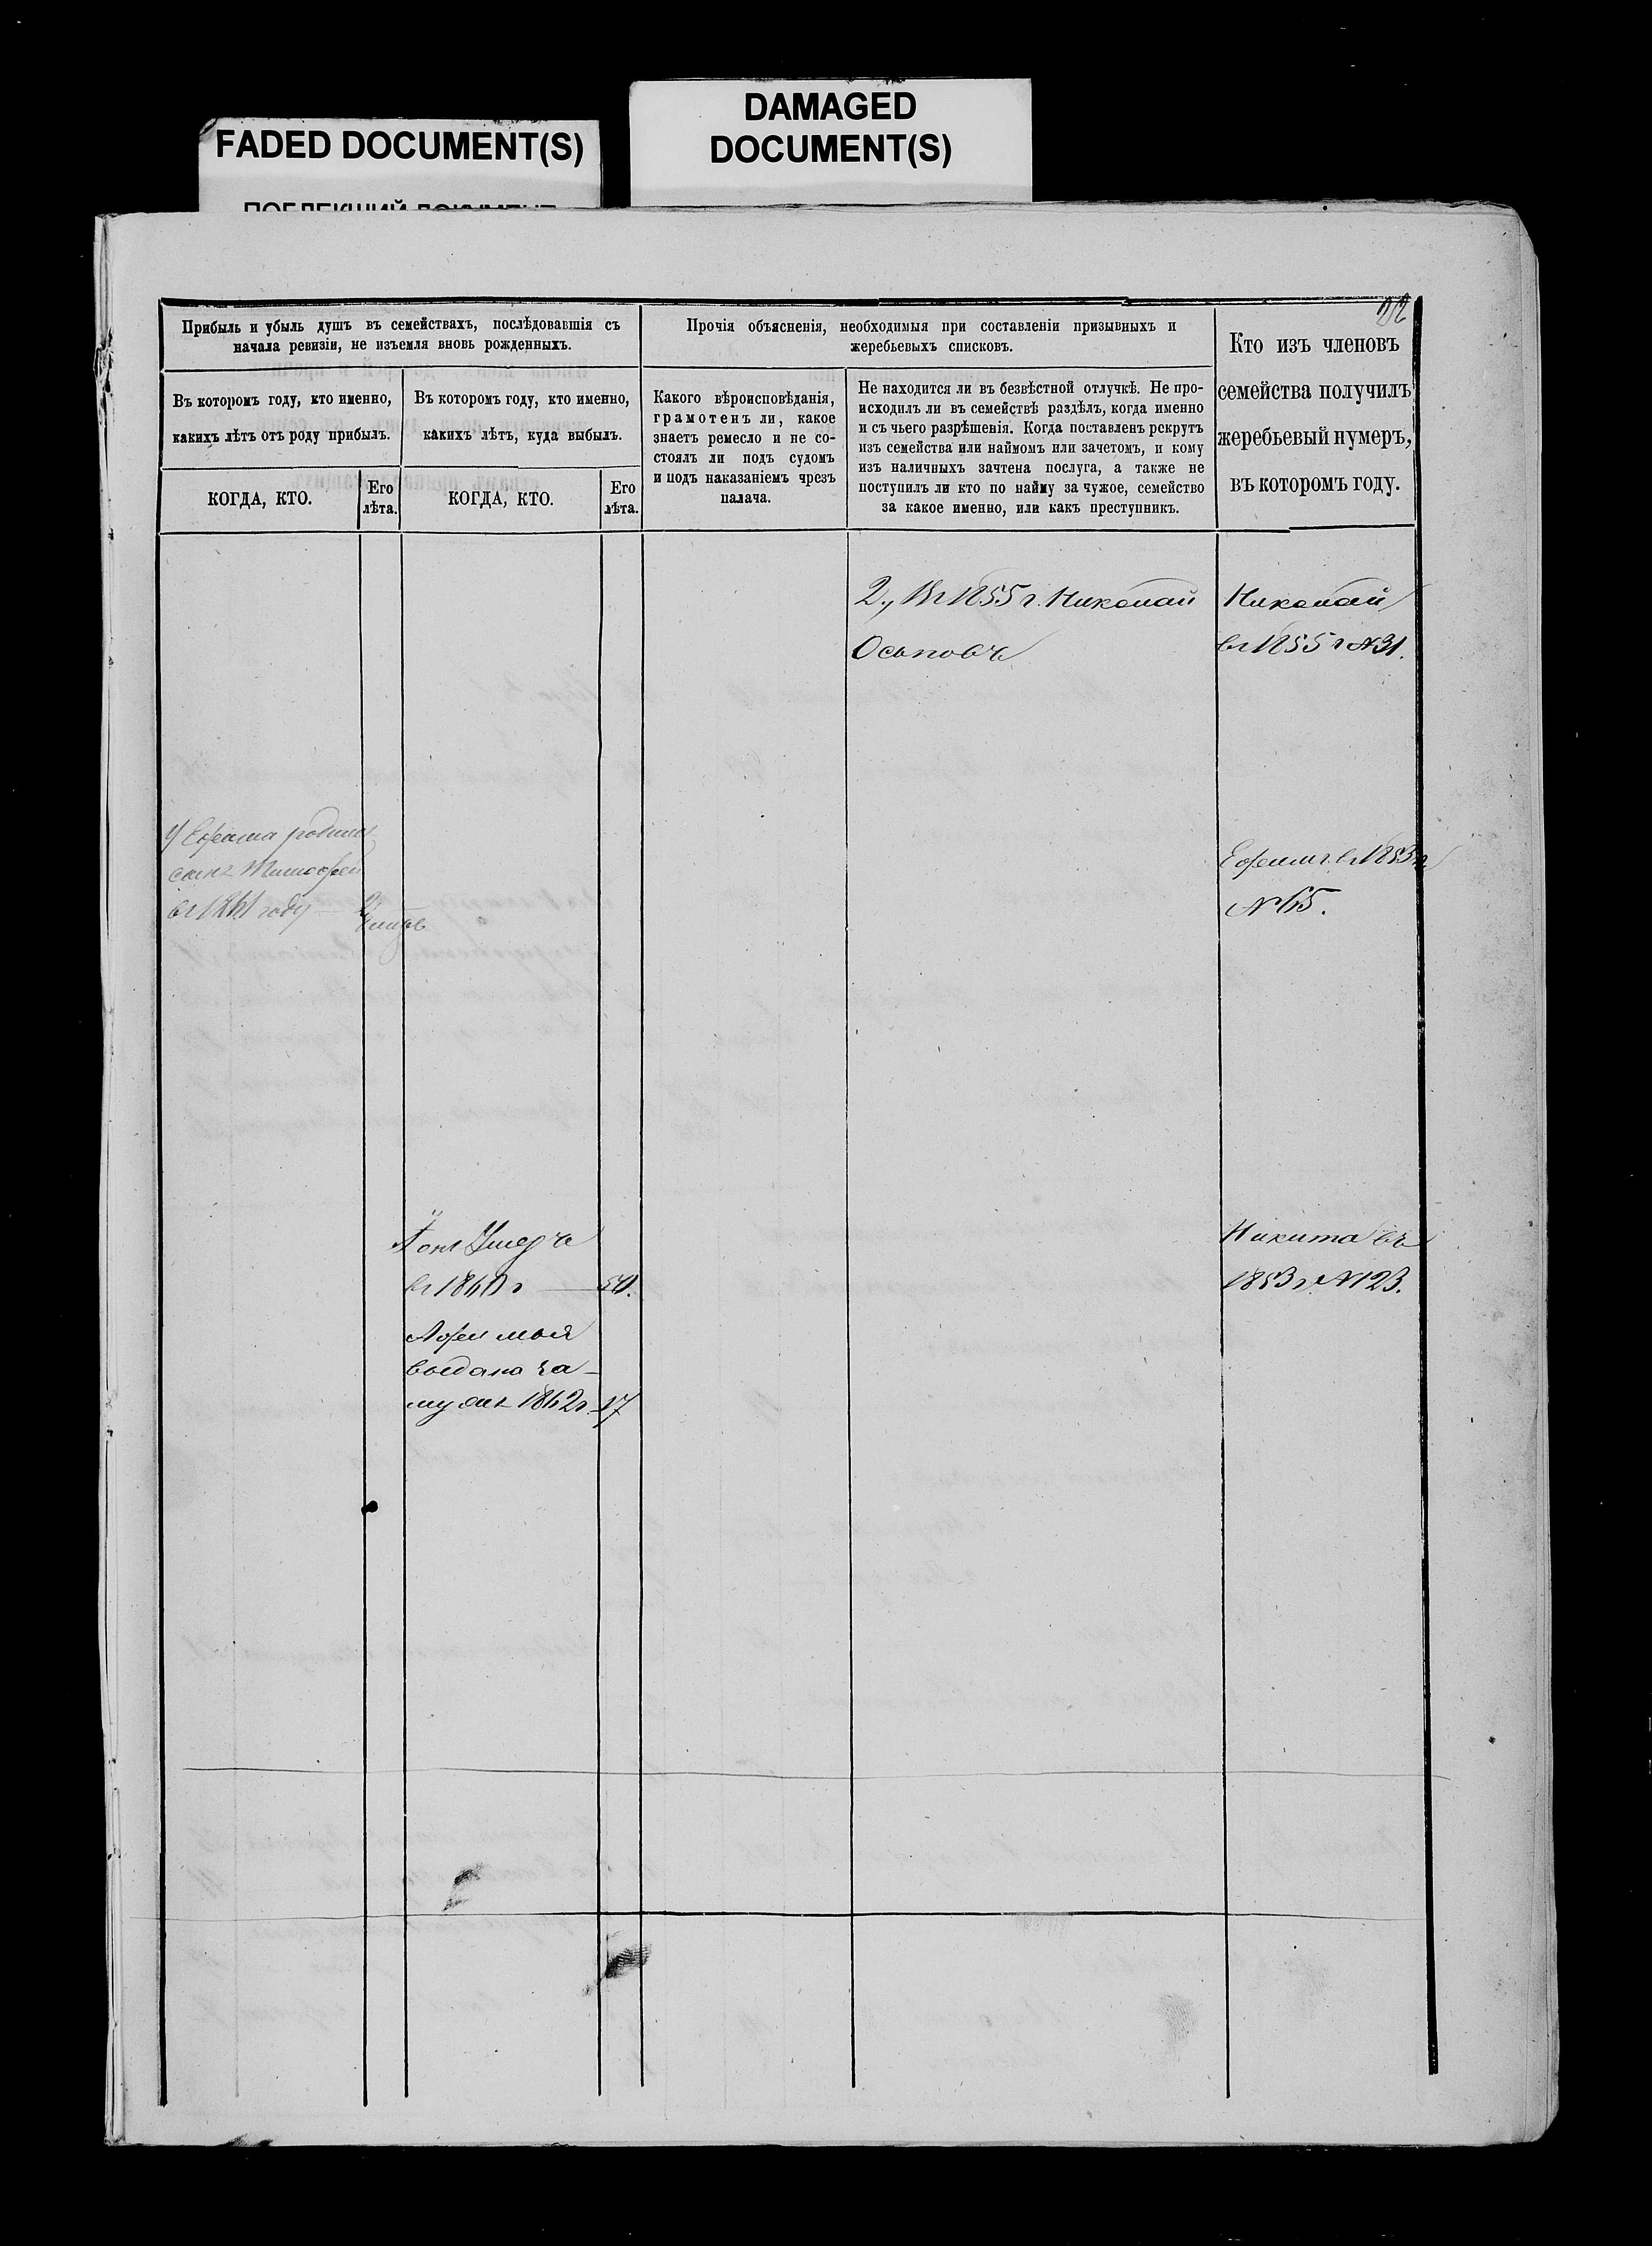 FADED DOCUMENT(S)
DAMAGED
DOCUMENT(S)
Прибыль и убыль душъ въ семействахъ, послѣдовавшія съ
начала ревизіи, не изъемля вновь рожденныхъ.
Въ которомъ году, кто именно,
какихъ лѣтъ отъ роду прибылъ.
КОГДА, КТО.
Его
лѣта.
Въ которомъ году, кто именно,
какихъ лѣтъ, куда выбылъ.
КОГДА, КТО.
Его
лѣта.
Прочія объясненія, необходимыя при составленіи призывныхъ и
жеребьевыхъ списковъ.
Какого вѣроисповѣданія,
грамотенъ ли, какое
знаетъ ремесло и не со-
стоялъ ли подъ судомъ
и подъ наказаніемъ чрезъ
палача.
Не находится ли въ безвѣстной отлучкѣ. Не про-
исходилъ ли въ семействѣ раздѣлъ, когда именно
и съ чьего разрѣшенія. Когда поставленъ рекрутъ
изъ семейства или наймомъ или зачетомъ, и кому
изъ наличныхъ зачтена послуга, а также не
поступилъ ли кто по найму за чужое, семейство
за какое именно, или какъ преступникъ.
Кто изъ членовъ
семейства получилъ
жеребьевый нумеръ,
въ которомъ году.
2., Въ 1855 г. Николай
Осиповъ
Николай
въ 1855 г №31.
У Ефима родился
сынъ Тимофей
въ 1861 году
Ефимъ въ 1853 г
№65.
Умеръ
въ 1860 г
Афимья
выдана за-
мужъ 1862 г. 17
Никита въ
1853 г. №123.